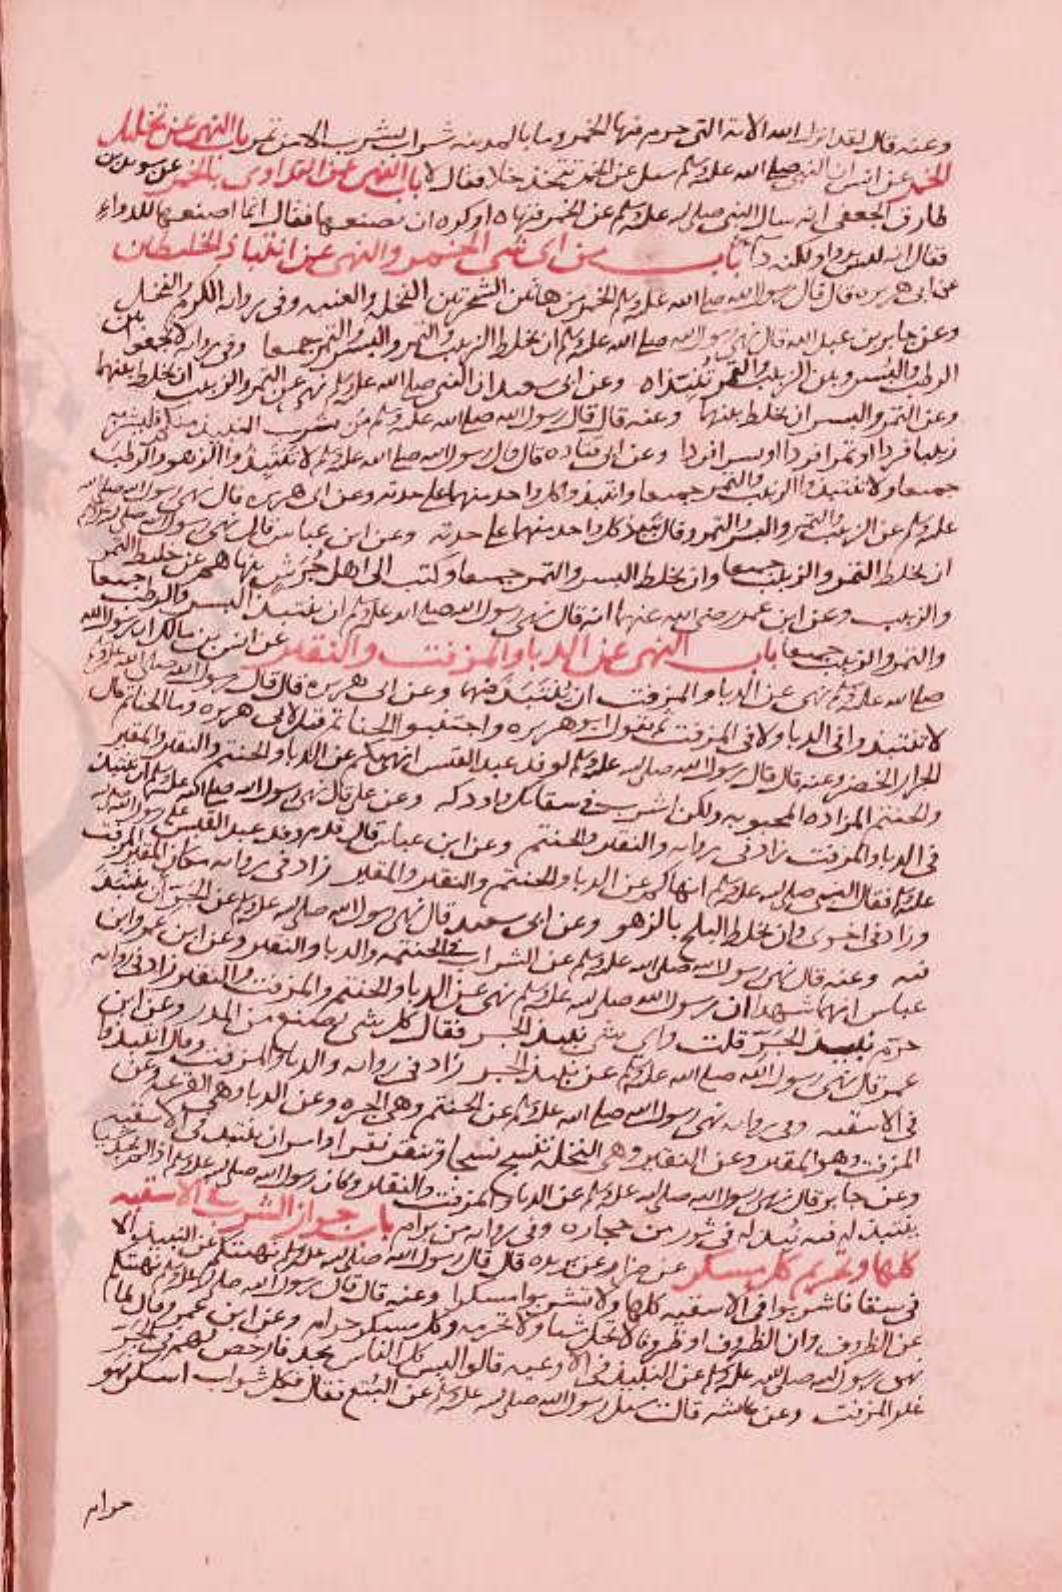 وعنه قال لقد انزل الله الاية التى حرم فيها الخمر وما بالمدينة شراب يشرب الا من تمر باب النهى عن تخليل
الخمر عن انس ان النبى صلى الله عليه وسلم سئل عن الخمر تتخذ خلا فقال لا باب النهى عن التداوى بالخمر عن سويد بن
طارق الجعفى انه سال النبى صلى الله عليه وسلم عن الخمر فنهاه او كره ان يصنعها فقال انما اصنعها للدواء
فقال انه ليس بدواء ولكنه داء باب من اى شى الخمر والنهى عن انتباذ الخليطين
عن ابى هريرة قال قال رسول الله صلى الله عليه وسلم الخمر من هاتين الشجرتين النخلة والعنبة وفى رواية الكرم والنخل
وعن جابر بن عبد الله قال نهى رسول الله صلى الله عليه وسلم ان يخلط الزبيب والتمر والبسر والتمر جميعا وفى رواية لا تجمعوا بين
الرطب والبسر وبين الزبيب والتمر نبيذا وعن ابى سعيد ان النبى صلى الله عليه وسلم نهى عن التمر والزبيب ان يخلط بينهما
وعن التمر والبسر ان يخلط بينهما وعنه قال قال رسول الله صلى الله عليه وسلم من يشرب النبيذ منكم فليشربه
زبيبا فردا او تمرا فردا او بسرا فردا وعن ابى قتادة قال قال رسول الله صلى الله عليه وسلم لا تنتبذوا الزهو والرطب
جميعا ولا تنتبذوا الزبيب والتمر جميعا وانتبذوا كل واحد منهما على حدته وعن ابى هريرة قال نهى رسول الله صلى الله
عليه وسلم عن الزبيب والتمر والبسر والتمر وقال ينبذ كل واحد منهما على حدته وعن ابن عباس قال نهى رسول الله صلى الله عليه وسلم
ان يخلط التمر والزبيب جميعا وان يخلط البسر والتمر جميعا وكتب الى اهل جرش ينهاهم عن خليط التمر
والزبيب وعن ابن عمر رضى الله عنهما انه قال نهى رسول الله صلى الله عليه وسلم ان ينتبذ البسر والرطب جميعا
والتمر والزبيب جميعا باب النهى عن الدباء والمزفت والنقير عن انس بن مالك ان رسول الله
صلى الله عليه وسلم نهى عن الدباء والمزفت ان ينتبذ فيهما وعن ابى هريرة قال قال رسول الله صلى الله عليه وسلم
لا تنتبذوا فى الدباء ولا فى المزفت ثم يقول ابو هريرة واجتنبوا الحناتم قيل لابى هريرة وما الحناتم قال
الجرار الخضر وعنه قال قال رسول الله صلى الله عليه وسلم لوفد عبد القيس انهيكم عن الدباء والحنتم والنقير والمقير
والحنتم المزادة المحبوبة ولكن اشرب فى سقائك واوكه وعن على قال نهى رسول الله صلى الله عليه وسلم ان ينتبذ
فى الدباء والمزفت زاد فى رواية والنقير والحنتم وعن ابن عباس قال قدم وفد عبد القيس على رسول الله صلى الله
عليه وسلم فقال النبى صلى الله عليه وسلم انهاكم عن الدباء والحنتم والنقير والمقير زاد فى رواية مكان المقير المزفت
وزاد فى اخرى وان يخلط البلح بالزهو وعن ابى سعيد قال نهى رسول الله صلى الله عليه وسلم عن الجر ان ينتبذ
فيه وعنه قال نهى رسول الله صلى الله عليه وسلم عن الشراب فى الحنتمة والدباء والنقير وعن ابن عمر وابن
عباس انهما شهدا ان رسول الله صلى الله عليه وسلم نهى عن الدباء والحنتم والمزفت والنقير زاد فى رواية
حرم نبيذ الجر قلت واى شى نبيذ الجر فقال كل شى يصنع من المدر وعن ابن
عمر قال نهى رسول الله صلى الله عليه وسلم عن نبيذ الجر زاد فى رواية والدباء والمزفت وقال انتبذوا
فى الاسقية وفى رواية نهى رسول الله صلى الله عليه وسلم عن الحنتم وهى الجرة وعن الدباء وهى القرعة وعن
المزفت وهو المقير وعن النقير وهى النخلة تنسج نسجا وتنقر نقرا وامر ان ينتبذ فى الاسقية
وعن جابر قال نهى رسول الله صلى الله عليه وسلم عن الدباء والمزفت والنقير وكان رسول الله صلى الله عليه وسلم اذا لم يجد شيا
ينتبذ له فيه نبذ له فى تور من حجارة وفى رواية من برام باب جواز الشرب فى الاسقية
كلها وتحريم كل مسكر عن بريدة قال قال رسول الله صلى الله عليه وسلم نهيتكم عن النبيذ الا
فى سقاء فاشربوا فى الاسقية كلها ولا تشربوا مسكرا وعنه قال قال رسول الله صلى الله عليه وسلم نهيتكم
عن الظروف وان الظروف او ظرفا لا يحل شيا ولا يحرمه وكل مسكر حرام وعن ابن عمرو قال لما
نهى رسول الله صلى الله عليه وسلم عن النبيذ فى الاوعية قالوا ليس كل الناس يجد فارخص لهم فى الجر
غير المزفت وعن عائشة قالت سئل رسول الله صلى الله عليه وسلم عن البتع فقال كل شراب اسكر فهو
حرام